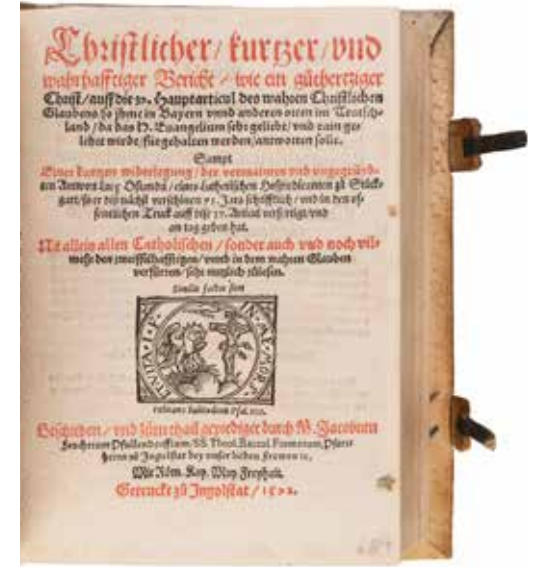 Christlicher / kurtzer / vnd
warhafftiger Bericht / wie ein gůthertziger
Christ / auff die 37. Hauptarticul des wahren Christlichen
Glaubens so jhme in Bayern vnnd anderen orten im Teutsch-
land / da das H. Euangelium sehr geliebt / vnd rain ge-
lehrt wirdt / fürgehalten werden / antworten solle.
Sampt
Einer kurtzen widerlegung / der vermainten vnd vngegründ-
ten Antwort Lucę Osiandri / eines Lutherischen Hofpredicanten zů Stůck-
gart / so er diß nächst verschinen 91. Jars schrifftlich / vnd in den of-
fentlichen Truck auff dise 37. Articul verfertigt / vnd
an tag geben hat.
Nit allein allen Catholischen / sonder auch vnd noch vil-
mehr den zweiffelhafftigen / vnnd in dem wahren Glauben
verfürten / sehr nutzlich zůlesen.
Similis factus sum
ET VITA I P
IN ME MORS
solitudinis Psal.
Beschriben / vnd zům theil geprediget durch M. Jacobum
Feuchtium Pfullendorffium, SS. Theol. Baccal. Formatum, Pfarr-
herrn zů Ingolstat bey vnser lieben Frawen
Mit Röm. Kay. May Freyheit.
Getruckt zů Ingolstat / 1592.